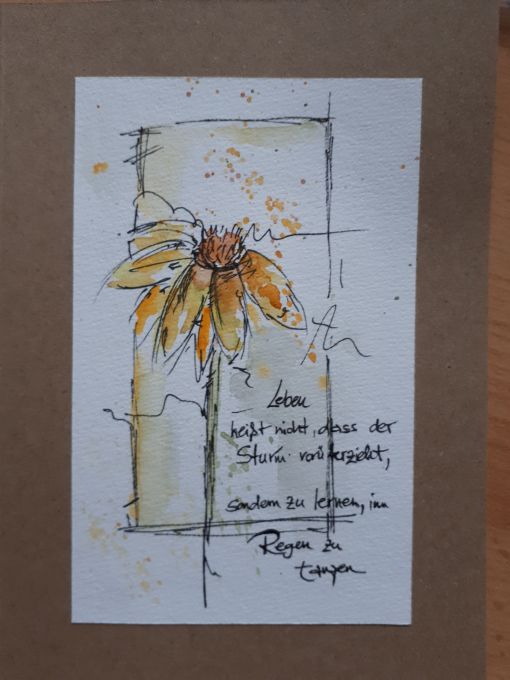 Leben
heißt nicht, dass der
Sturm vorüberzieht,
sondern zu lernen, im
Regen zu
tanzen